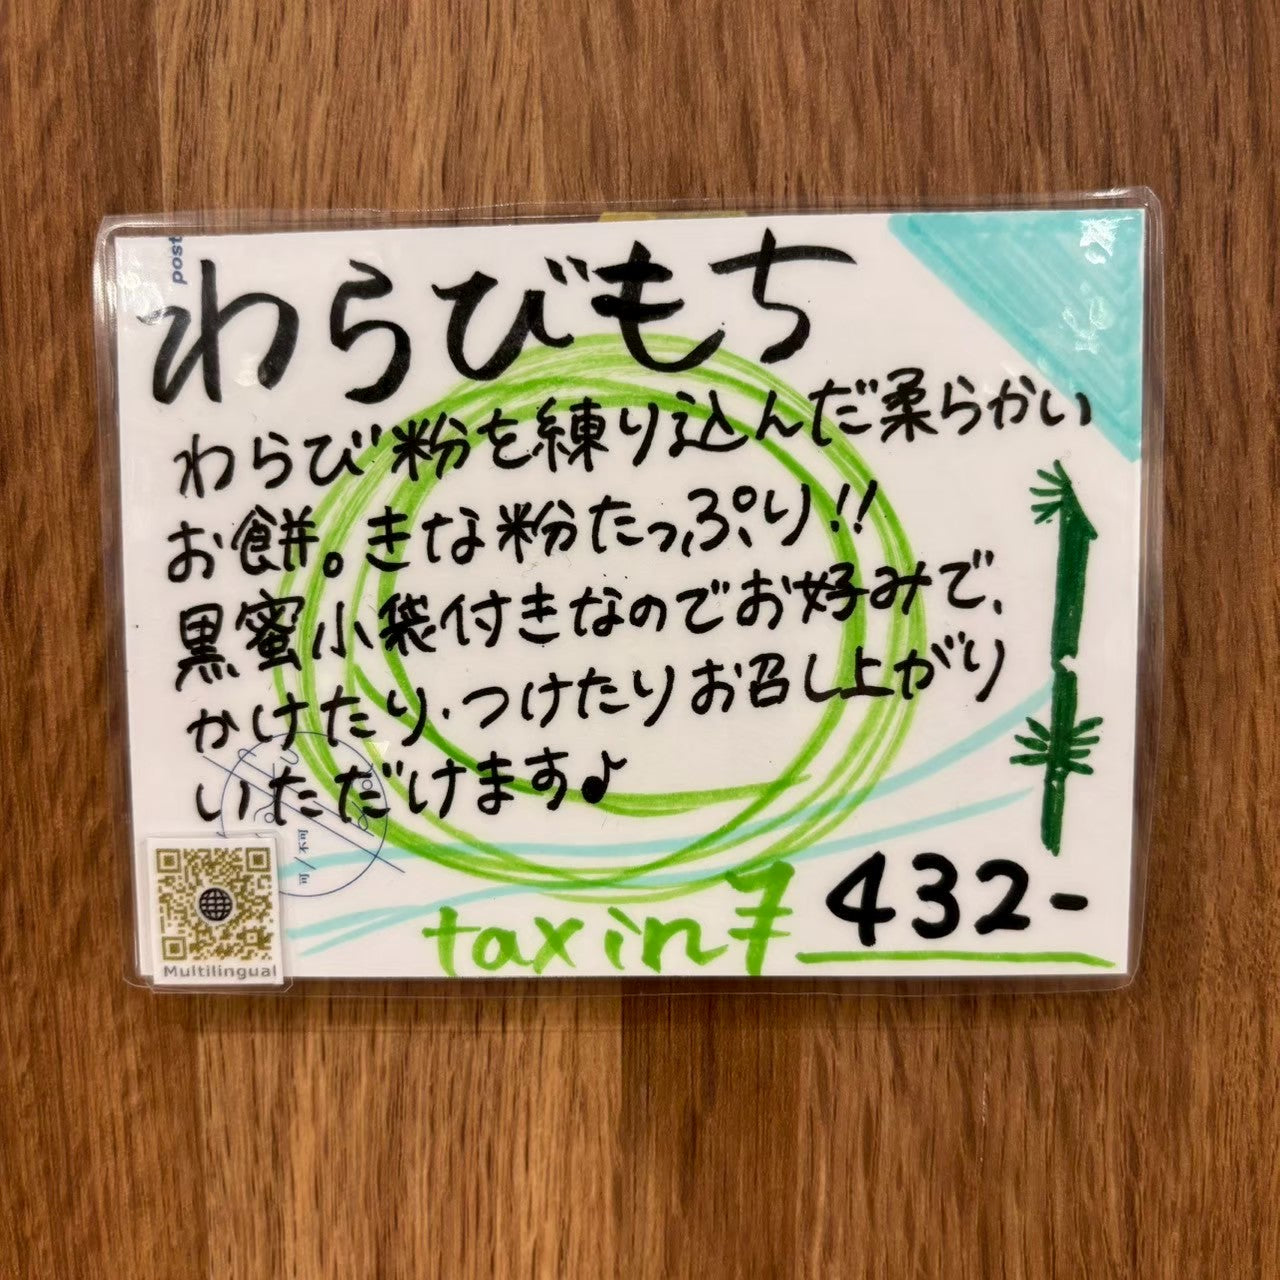 post
わらびもち
わらび粉を練り込んだ柔らかい
お餅。きな粉たっぷり!!
黒蜜小袋付きなのでお好みで、
かけたり・つけたりお召し上がり
いただけます♪
tax in
432-
Multilingual